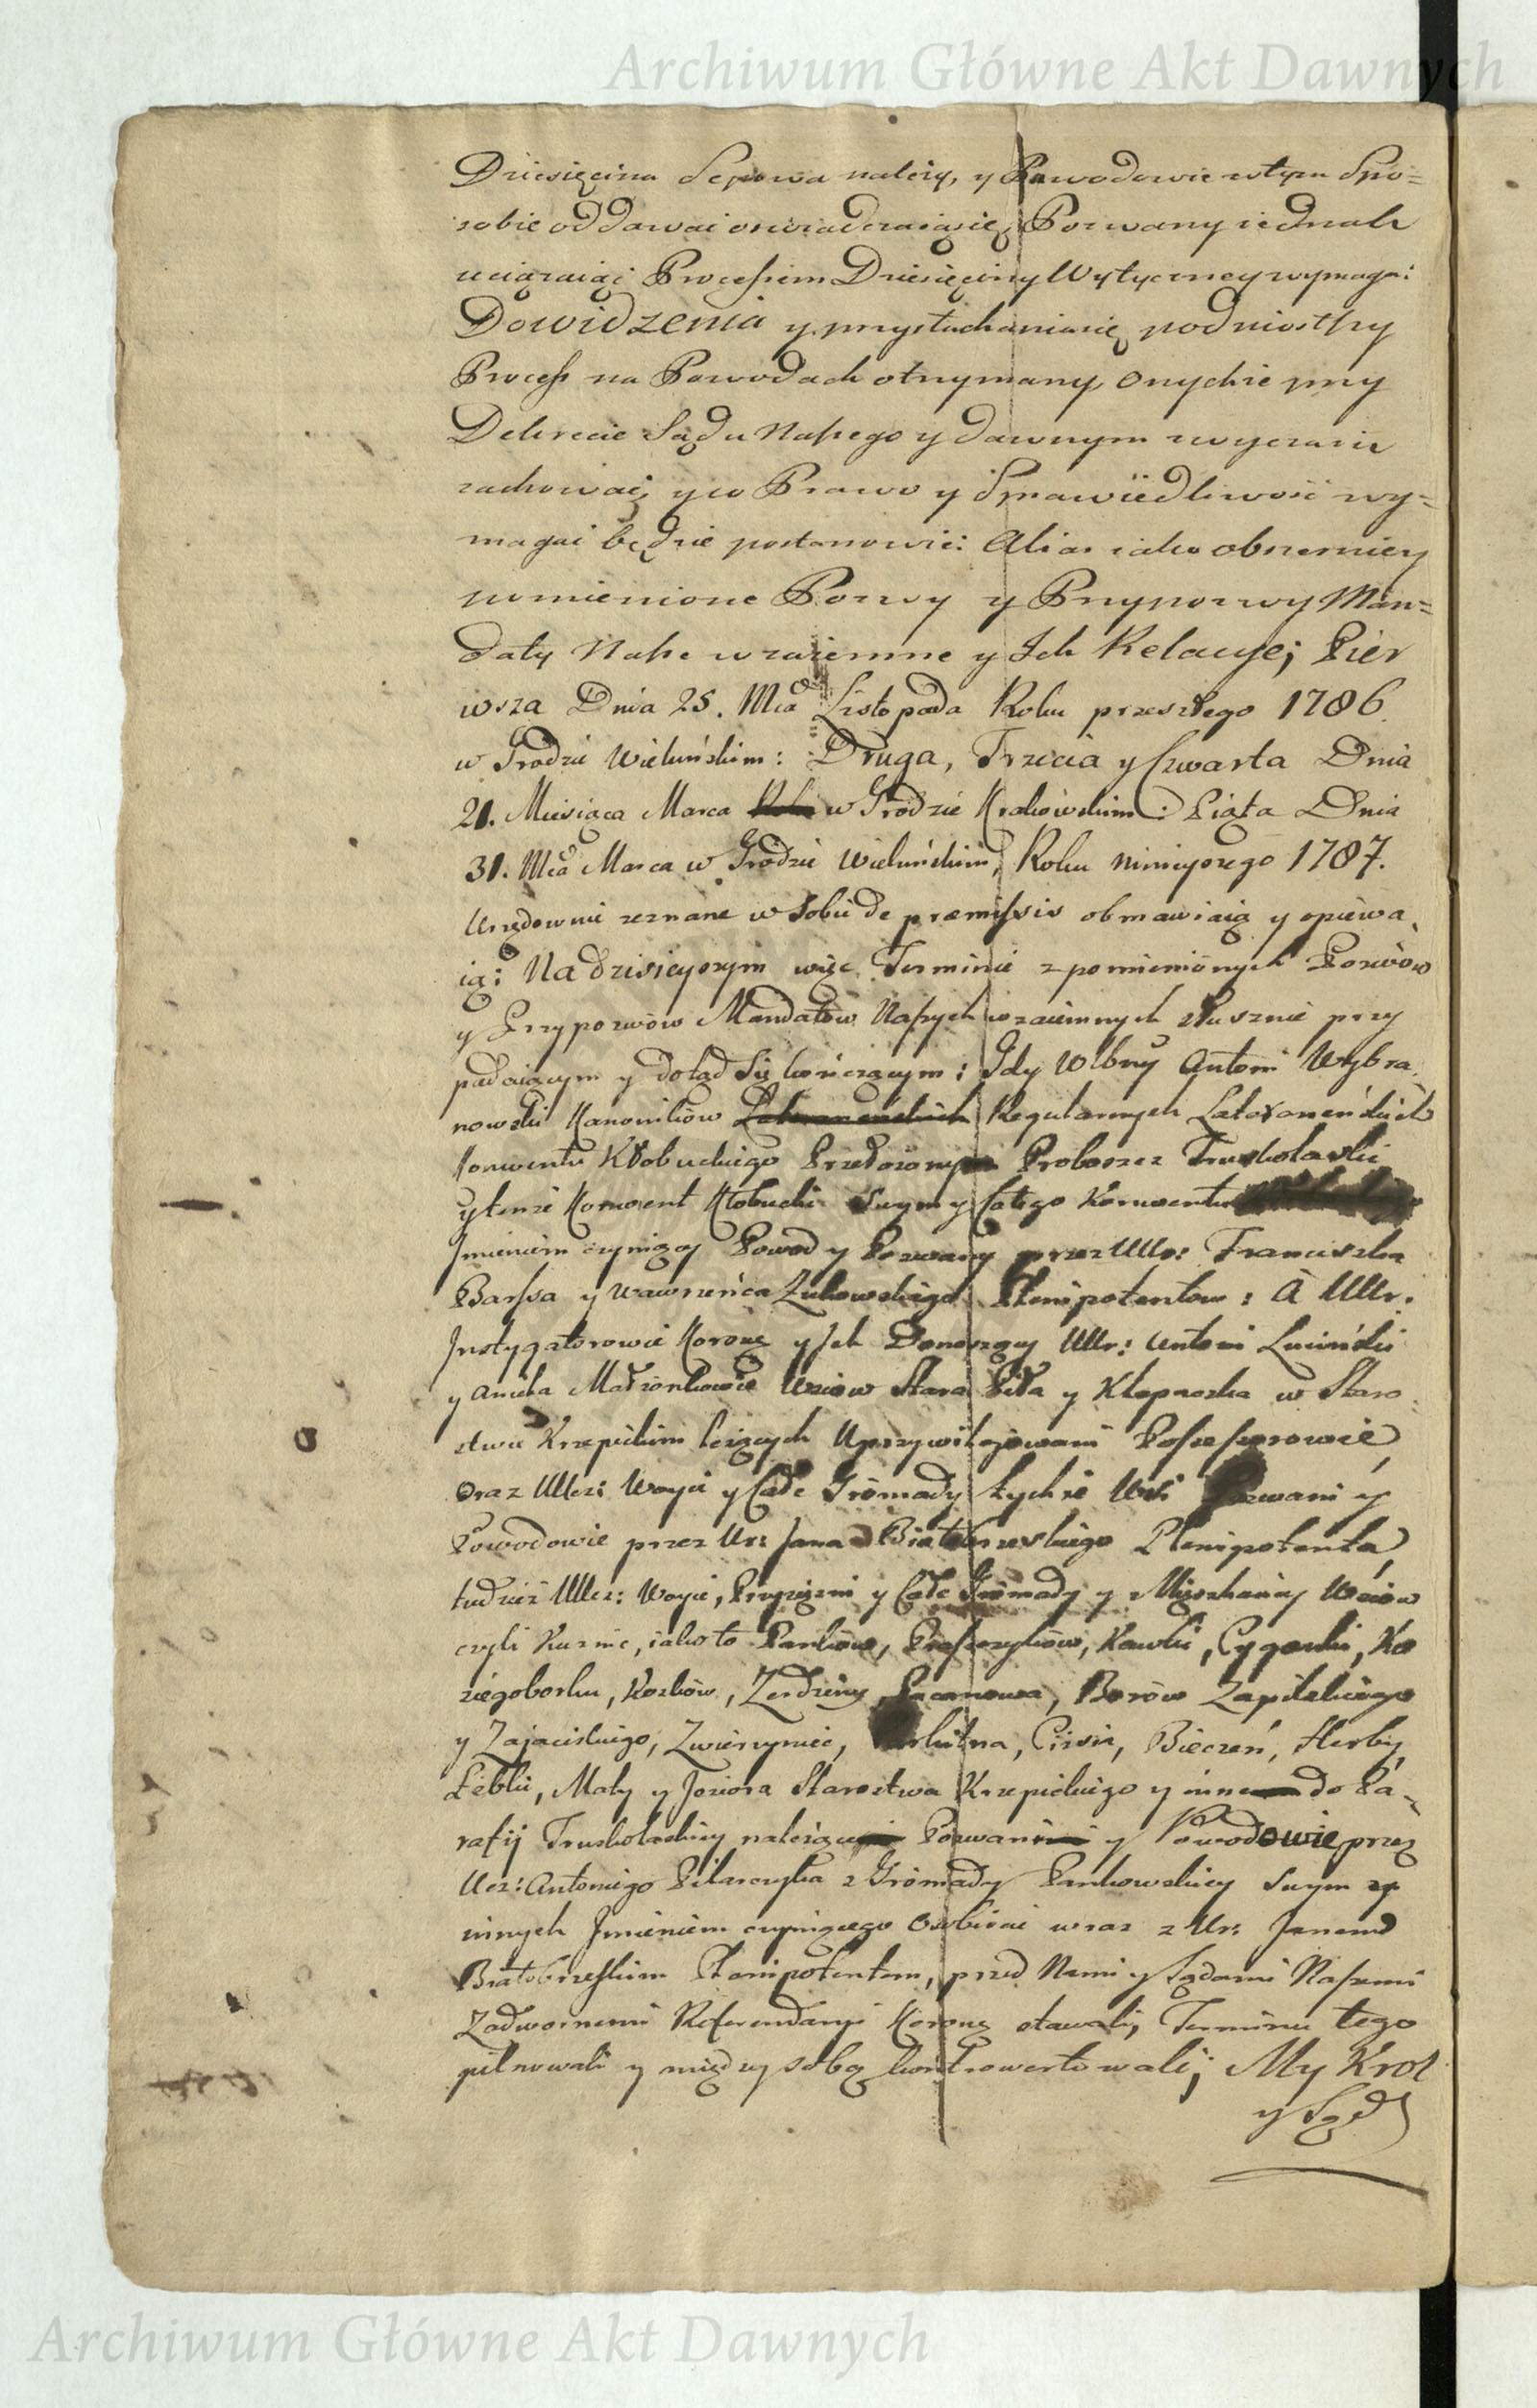 Archiwum Główne Akt Dawnych
Dziesięcina Sepowa należy, y Powodowie w tym Spo=
sobie oddawać oswiadczaią się, Pozwany iednak
uciązaiąc Processem Dziesięciny Wytyczney wymaga:
Do widzenia y przysłuchania się podniosthy
Process na Powodach otrzymany, Onychże przy
Dekrecie Sądu Naszego y dawnym zwyczaiu
zachować, y co Prawo y Sprawiedliwość wy=
magać będzie postanowić: Alias iako obszerniey
pomienione Pozwy y Przypozwy Man=
daty Nasze wzaiemne y Ich Relacye; Pier
wsza Dnia 25. Mca Listopada Roku przeszłego 1786
w Grodzie Wieluńskim: Druga, Trzecia y Czwarta Dnia
21. Miesiąca Marca w Grodzie Krakówskim: Piąta Dnia
31. Mca Marca w Grodzie Wieluńskim, Roku ninieyszego 1787.
Urzędownie zeznane w Sobie de præmissis obmawiaią y opiewa
ią: Na dzisieyszym więc Terminie z pomienionych Pozwów
y Przypozwów Mandatów Naszych wzaiemnych słusznie przy
padaiącym y dotąd się kończącym: Gdy Wlbny Antoni Wybra
nowski Kanoników Regularnych Lateraneńskich
Konwentu Kłobuckiego Przełożony Proboszcz Truskolaski
y tenże Konwent Kłobucki Swym y Całego Konwentu
Jmieniem czyniący Powod y Pozwany przez UUr: Franciszka
Barssa y Wawrzeńca Zukowskiego Plenipotentow: A UUr.
Instygatorowie Koronę y Ich Donoszący UUr: Antoni Luciński
y Aniela Małżonkowie Wsiow Stara Piła y Kłepaczka w Staro
stwie Krzepickim leżących Uprzywileiowani Possessorowie,
Oraz UUcz: Woyci y Całe Gromady tychże Wsi Pozwani y
Powodowie przez Ur: Jana Białobrzeskiego Plenipotenta,
tudzież UUcz: Woyci, Przysiężni y Całe Gromady y Mieszkańcy Wsiow
czyli Kuznic, iako to Pankow, Praszczyków, Kawki, Cyganki, Ko
ziegoborku, Kozłów, Zerdziny, Pacanowa, Borów Zapilskiego
y Zajacskiego, Zwierzyniec, Cisia, Bieczeń, Herby,
Łebki, Mały y Jeziora Starostwa Krzepickiego y inne do Pa-
rafij Truskolaskiey należące Pozwani y Powodowie przez
Ucz: Antoniego Pilarczyka z Gromady Pankowskiey Swym y
innych Jmieniem czyniącego Osobiście wraz z Ur: Janem
Białobrzeskim Plenipotentem, przed Nami y Sądami Naszemi
Zadwornemi Referendaryi Koronę stawali, Terminu tego
pilnowali y między sobą kontrowertowali; My Krol
y Sąd
Archiwum Główne Akt Dawnych